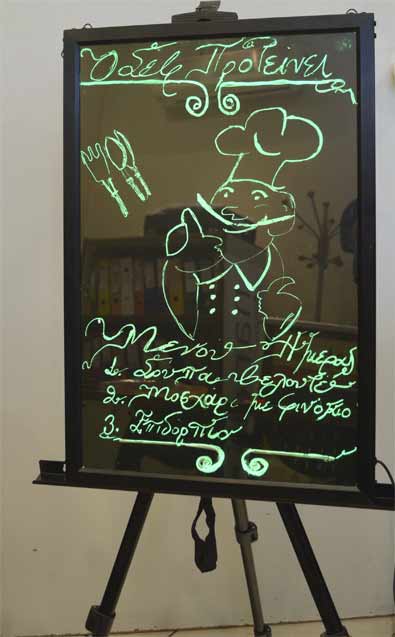 Ο Σεφ Προτείνει
Μενού Ημέρας
1. Σούπα Βελουτέ
2. Μοσχάρι με φινόκιο
3. Επιδόρπιο